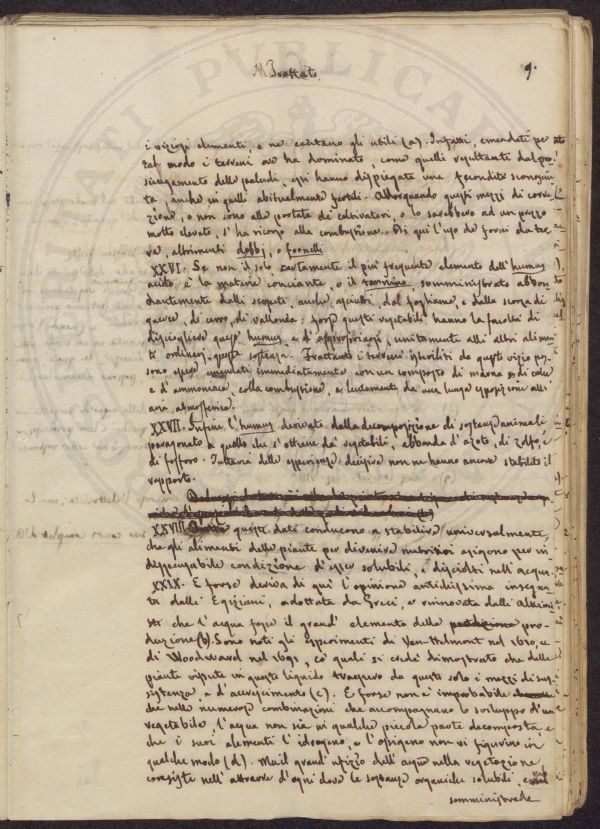 Trattato
9.
i viziosi elementi, e ne eccitano gli utili (a). Infatti, emendati per
tal modo i terreni ove ha dominato, come quelli risultanti dal pro-
sciugamento delle paludi, essi hanno dispiegata una fecondità sconosciu-
ta, anche in quelli abitualmente fertili. Allorquando questi mezzi di corre-
zione, o non sono alla portata de' coltivatori, o lo sarebbero ad un prezzo
molto elevato, s'ha ricorso alla combustione. Di qui l'uso de' forni da ter-
ra, altrimenti debbj, o fornelli
XXVI. Se non il solo, certamente il più frequente elemento dell'humus
acido, è la materia conciante, o il tannino, somministrato abbon-
dantemente dalli scopeti, anche, dal fogliame, e dalla scorza di
querce, di cerro, di vallonea: forse questi vegetabili hanno la facoltà di
disciogliere quest'humus, e d'appropriarsi, unitamente alli altri alimen-
ti ordinarj, questa sostanza. Frattanto i terreni isteriliti da questo vizio pos-
sono esser emendati immediatamente con un composto di marna, di calce
e d'ammoniaca, colla combustione, e lentamente da una lunga esposizione all'
aria atmosferica.
XXVII. Infine l'humus derivato dalla decomposizione di sostanze animali
paragonato a quello che s'ottiene da' vegetabili, abbonda d'azoto, di zolfo, e
di fosforo. Tuttavia delle esperienze decisive non ne hanno ancora stabilito il
rapporto.
XXVIII. questi dati conducono a stabilire universalmente,
che gli alimenti delle piante per divenire nutritivi esigono per in-
dispensabile condizione d'esser solubili, e disciolti nell'acqua.
XXIX. E forse deriva di qui l'opinione antichissima insegna-
ta dalli Egiziani, adottata da' Greci, e rinnovata dalli Alchimi-
sti che l'acqua fosse il grand'elemento della pro-
duzione (b). Sono noti gli esperimenti di Van-Helmont nel 1610, e
di Woodward nel 1691, co' quali si credé dimostrato che delle
piante vissute in questo liquido traessero da questo solo i mezzi di sus-
sistenza, e d'accrescimento (c). E forse non è improbabile
che nelle numerose combinazioni che accompagnano lo sviluppo d'un
vegetabile, l'acqua non sia in qualche piccola parte decomposta, e
che i suoi elementi l'idrogeno, e l'ossigeno non vi figurino in
qualche modo (d). Ma il grand'ufizio dell'acqua nella vegetazione,
consiste nell'attrarre d'ogni dove le sostanze organiche solubili,
somministrarle